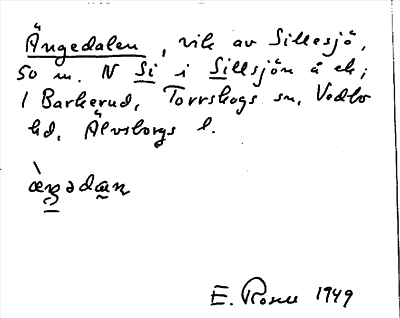 Ängedalen, vik av Sillesjö,
50 m. N Si i Sillsjön å ek;
/ Barkerud, Torrskogs sn, Vedbo
hd, Älvsborgs l.
E. Rosell 1949